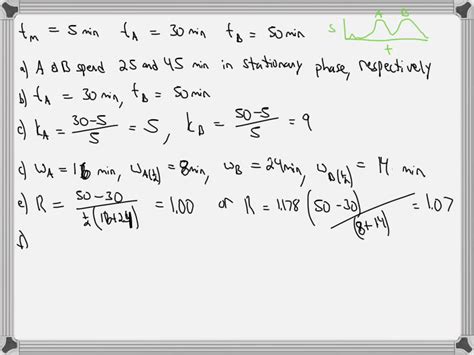 t_M = 5 min t_A = 30 min t_B = 50 min
S A B
t
a) A & B spend 25 and 45 min in stationary phase, respectively
b) t_A = 30 min, t_B = 50 min
c) k_A = (30-5)/5 = 5, k_B = (50-5)/5 = 9
d) w_A = 16 min, w_A(1/2) = 8 min, w_B = 24 min, w_B(1/2) = 14 min
e) R = (50-30)/(1/2(16+24)) = 1.00 or R = 1.178 (50-30)/(8+14) = 1.07
f)